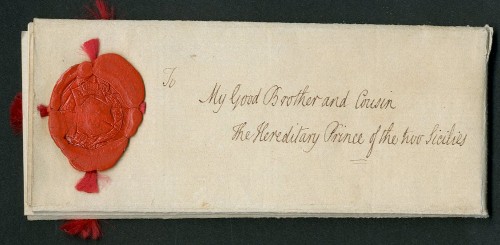 To
My Good Brother and Cousin
The Hereditary Prince of the two Sicilies